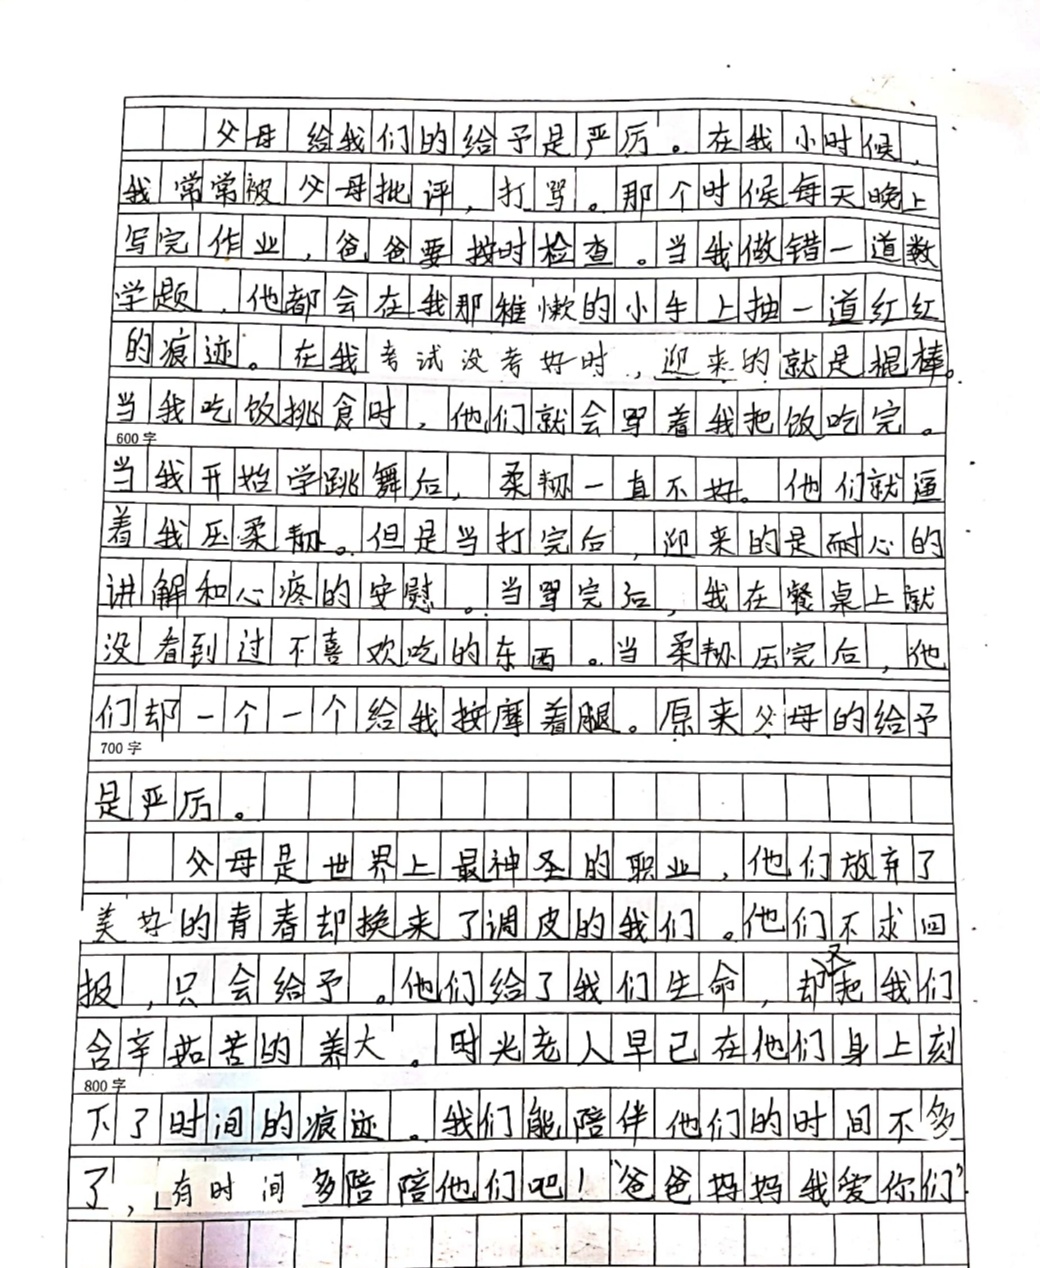 父母给我们的给予是严厉。在我小时候，
我常常被父母批评，打骂。那个时候每天晚上
写完作业，爸爸要按时检查。当我做错一道数
学题，他都会在我那稚嫩的小手上抽一道红红
的痕迹。在我考试没考好时，迎来的就是棍棒。
当我吃饭挑食时，他们就会骂着我把饭吃完。
600字
当我开始学跳舞后，柔韧一直不好。他们就逼
着我压柔韧。但是当打完后，迎来的是耐心的
讲解和心疼的安慰。当骂完后，我在餐桌上就
没看到过不喜欢吃的东西。当柔韧压完后，他
们却一个一个给我按摩着腿。原来父母的给予
700字
是严厉。
父母是世界上最神圣的职业，他们放弃了
美好的青春却换来了调皮的我们。他们不求回
报，只会给予。他们给了我们生命，却又把我们
含辛茹苦的养大。时光老人早已在他们身上刻
800字
下了时间的痕迹。我们能陪伴他们的时间不多
了，有时间多陪陪他们吧！“爸爸妈妈我爱你们”